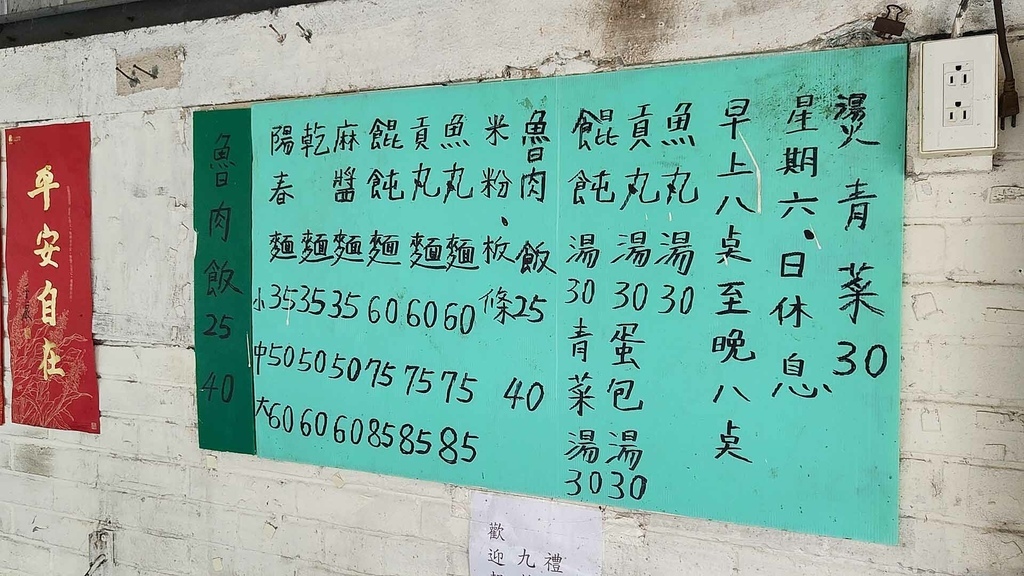 燙青菜30
星期六.日休息
早上八桌至晚八桌
魚丸湯30
貢丸湯30 蛋包湯30
餛飩湯30 青菜湯30
魯肉飯25 40
米粉.板條
魚丸麵 60 75 85
貢丸麵 60 75 85
餛飩麵 60 75 85
麻醬麵 35 50 60
乾麵 35 50 60
陽春麵 35 50 60
小 中 大
魯肉飯 25 40
平安自在
歡迎
九
禮